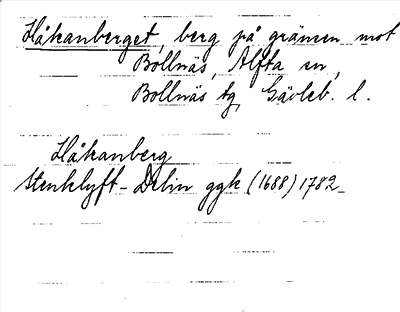 Håkanberget, berg på gränsen mot
Bollnäs, Alfta sn,
Bollnäs tg Gävleb. l.
Håkanberg
Stenklyft - Delin ggk (1688) 1782